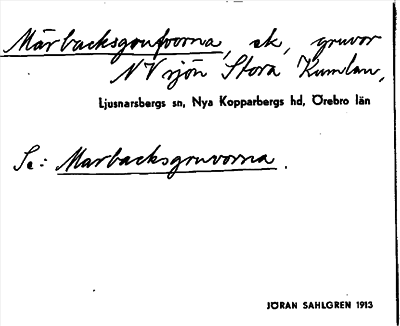 Märbacksgruvorna, ek, gruvor
NV sjön Stora Kumlan,
Ljusnarsbergs sn, Nya Kopparbergs hd, Örebro län
Se: Marbacksgruvorna.
JÖRAN SAHLGREN 1913